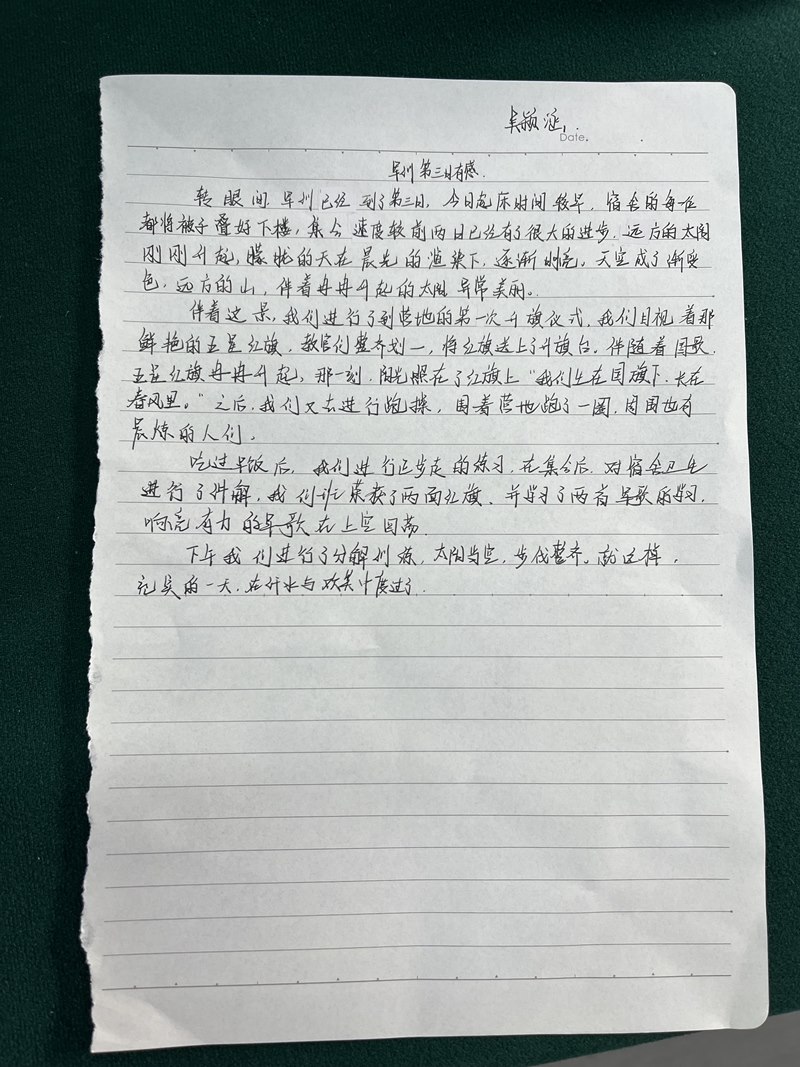 吴颖涵
Date.
军训第三日有感.
转眼间.军训已经到了第三日,今日起床时间较早,宿舍的每一位
都将被子叠好下楼,集合速度较前两日已经有了很大的进步.远方的太阳
刚刚升起,朦胧的天在晨光的渲染下,逐渐明亮.天空成了渐变
色.远方的山,伴着冉冉升起的太阳异常美丽。
伴着这景,我们进行了到营地的第一次升旗仪式,我们目视着那
鲜艳的五星红旗,教官们整齐划一,将红旗送上了升旗台.伴随着国歌.
五星红旗冉冉升起,那一刻.阳光照在了红旗上“我们生在国旗下.长在
春风里。”之后.我们又去进行跑操,围着营地跑了一圈,周围也有
晨炼的人们。
吃过早饭后,我们进行正步走的练习.在集合后.对宿舍卫生
进行了讲解,我们班荣获了两面红旗、并学习了两首军歌的学习.
响亮有力的军歌在上空回荡.
下午我们进行了分解训练,太阳当空,步伐整齐。就这样,
充实的一天.在汗水与欢笑中度过了.